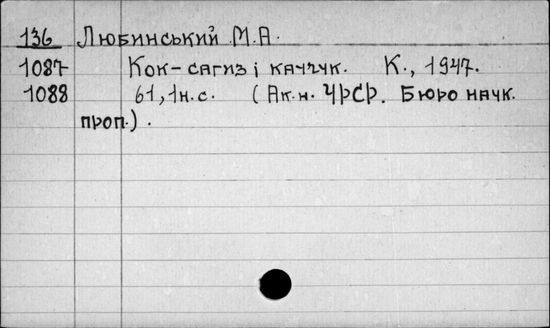 136 Любинський М.А.
1087 Кок-сагиз і каучук. К., 1947.
1088 61, 1н.с. (Ак.н. УРСР. Бюро наук.
проп.).